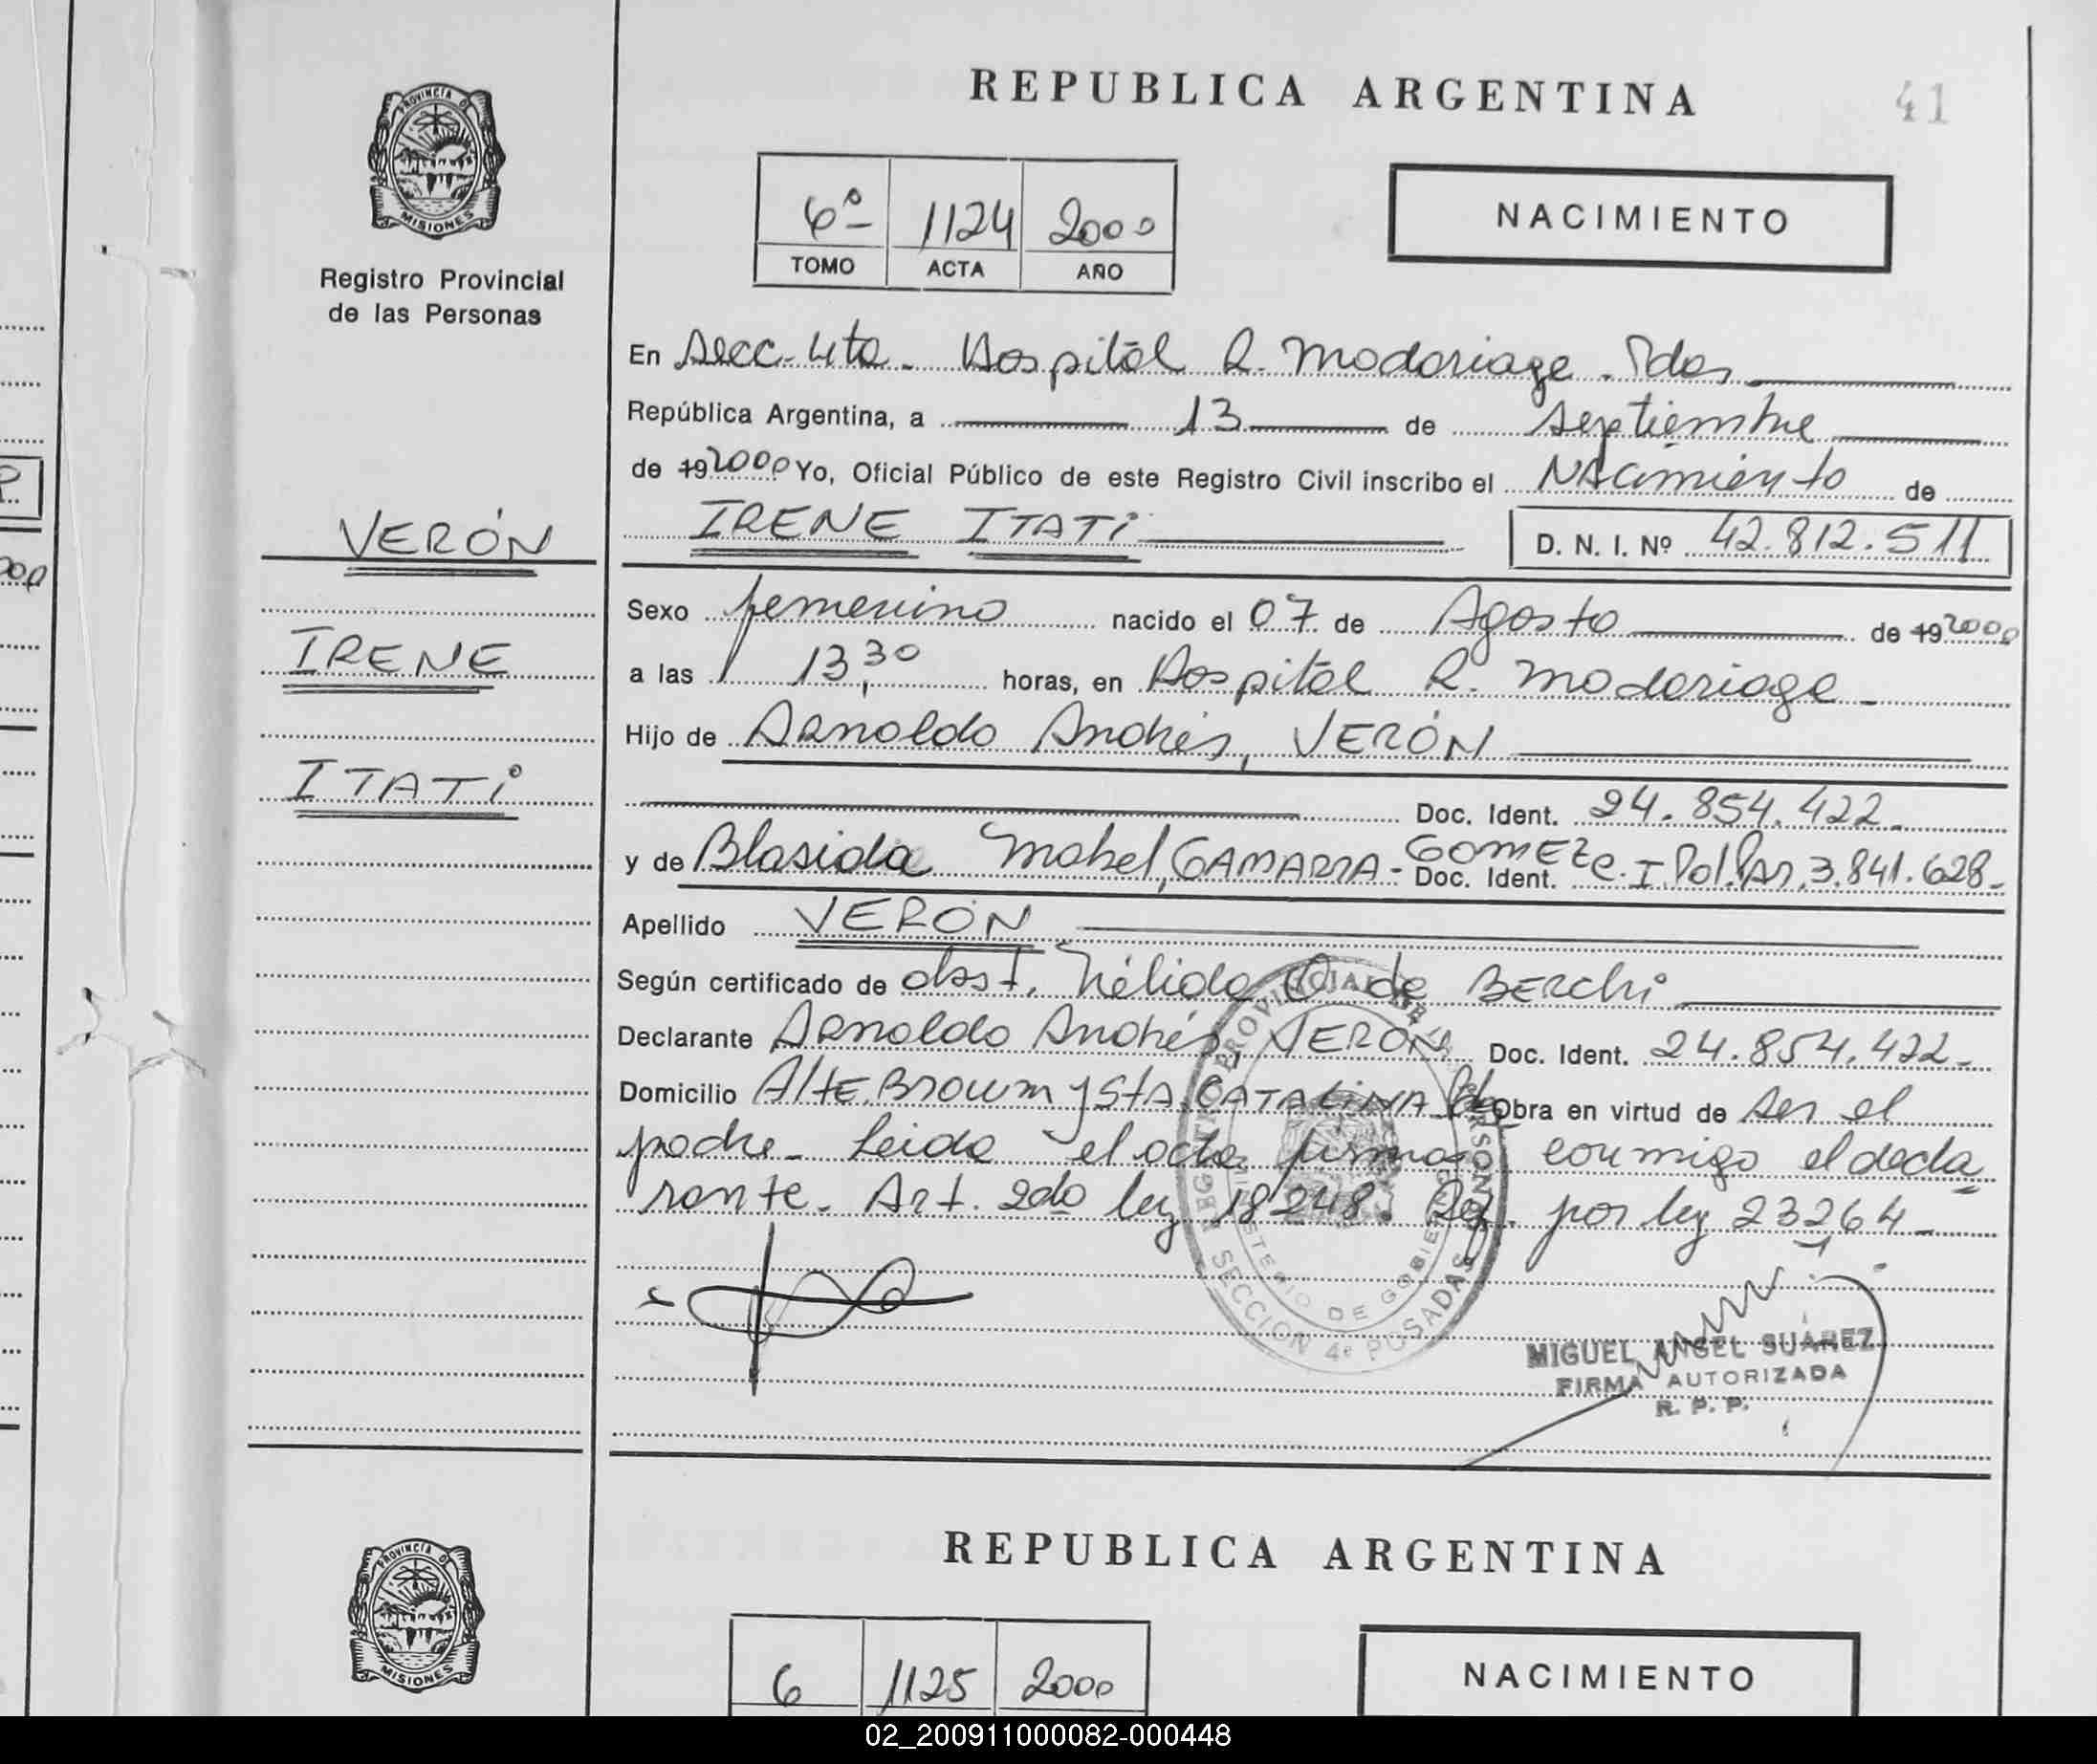 REPUBLICA ARGENTINA
41
PROVINCIA D
MISIONES
Registro Provincial
de las Personas
6º 1124 2000
TOMO ACTA AÑO
NACIMIENTO
En Secc. 4ta. Hospital R. Madariaga. Pdas
República Argentina, a 13 de Septiembre
de 19 2000 Yo, Oficial Público de este Registro Civil inscribo el Nacimiento de
IRENE ITATI D. N. I. Nº 42.812.511
VERÓN
IRENE
ITATI
Sexo femenino nacido el 07 de Agosto de 19 2000
a las 13,30 horas, en Hospital R. Madariaga
Hijo de Arnoldo Andrés, VERÓN
Doc. Ident. 24.854.422
y de Blasida Mabel, GAMARRA - GOMEZ Doc. Ident. C.I. Pol. Par. 3.841.628
Apellido VERÓN
Según certificado de obst. Nélida O de BERchi
Declarante Arnoldo Andrés, VERÓN Doc. Ident. 24.854.422
Domicilio AltE. Brown y StA. CATALINA Obra en virtud de ser el
padre. Leida el acta firma conmigo el decla
rante. Art. 2do ley 18248. por ley 23264
REGISTRO PROVINCIAL DE PERSONAS
MINISTERIO DE GOBIERNO
SECCION 4ª POSADAS
MIGUEL ANGEL SUAREZ
FIRMA AUTORIZADA
R. P. P.
REPUBLICA ARGENTINA
PROVINCIA D
MISIONES
6 1125 2000
NACIMIENTO
02_200911000082-000448